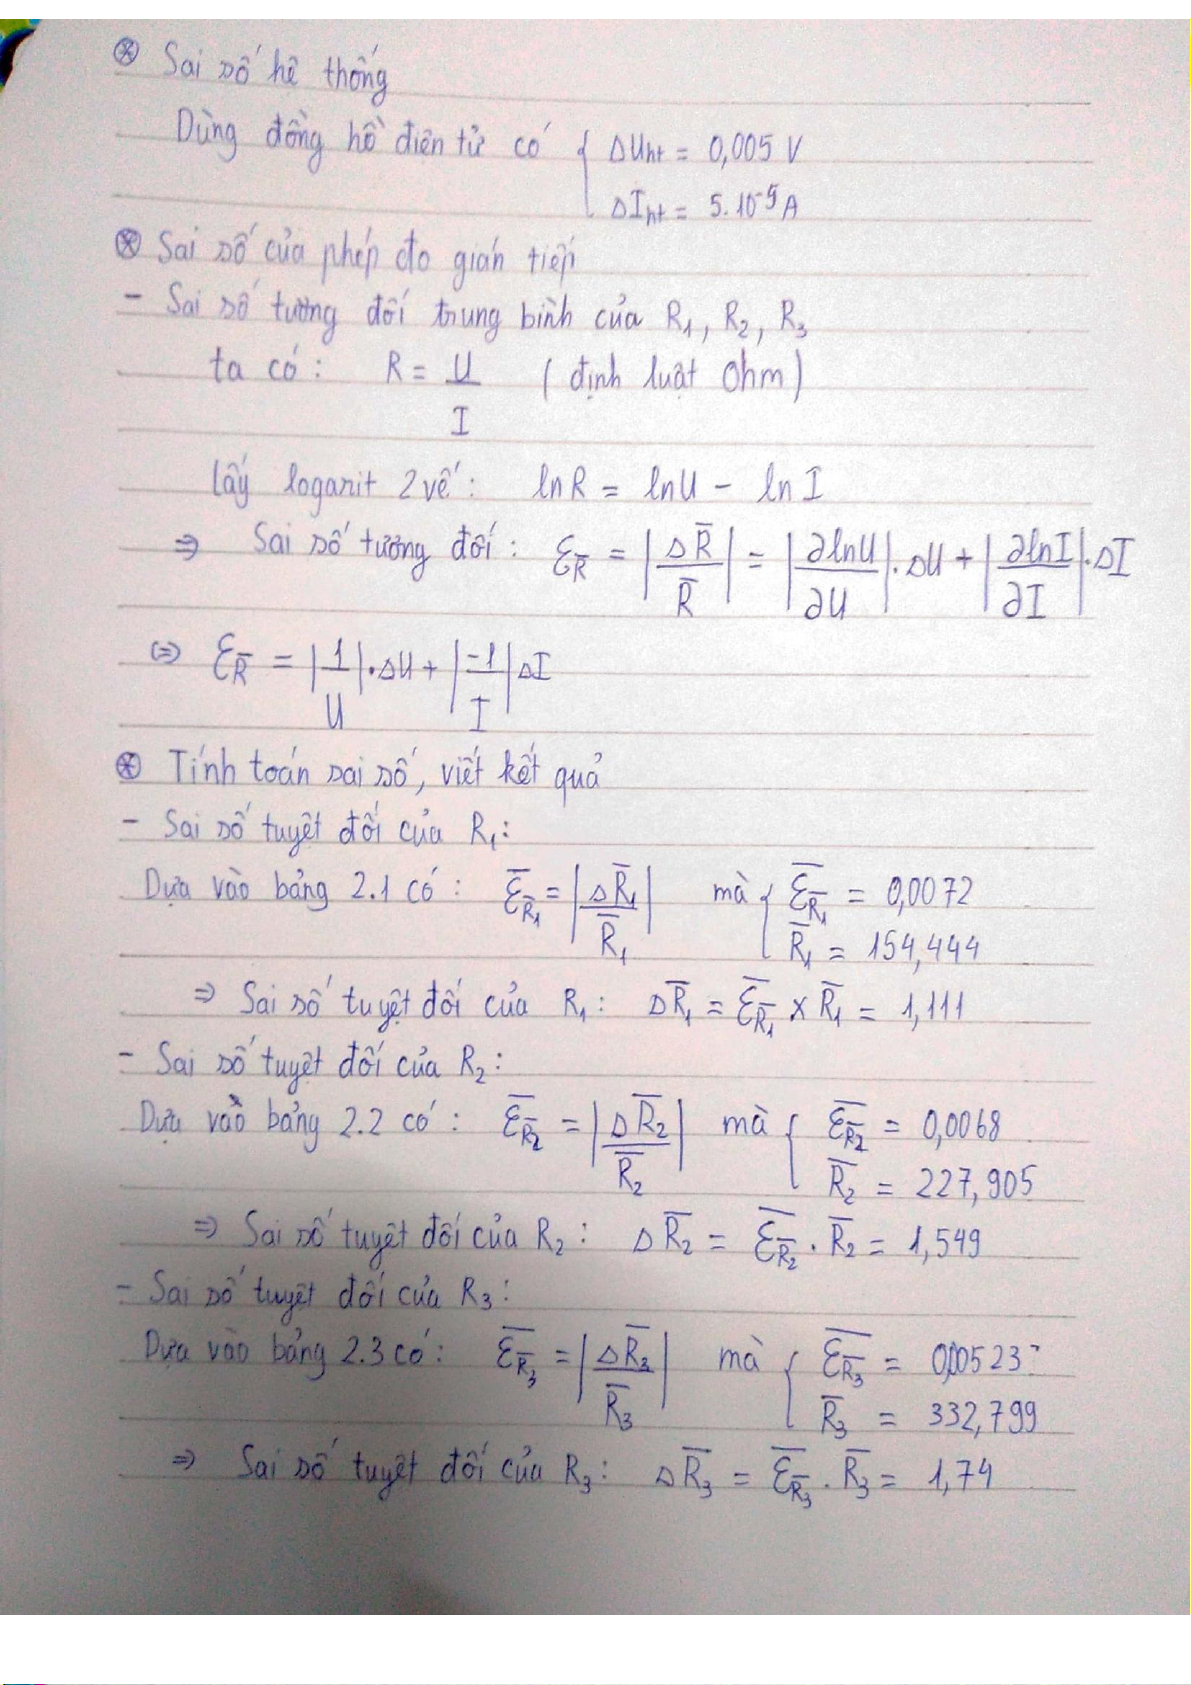 ⊛ Sai số hệ thống
Dùng đồng hồ điện tử có { ΔUht = 0,005 V
ΔIht = 5.10⁻⁵A
⊛ Sai số của phép đo gián tiếp
- Sai số tương đối trung bình của R₁, R₂, R₃
ta có: R = U/I (định luật Ohm)
Lấy loganit 2 vế: lnR = lnU - lnI
⇒ Sai số tương đối: Ɛ_R̅ = |ΔR̅/R̅| = |∂lnU/∂U|.ΔU + |∂lnI/∂I|.ΔI
⇔ Ɛ_R̅ = |1/U|.ΔU + |-1/I|ΔI
⊛ Tính toán sai số, viết kết quả
- Sai số tuyệt đối của R₁:
Dựa vào bảng 2.1 có: Ɛ̅_R̅₁ = |ΔR̅₁/R̅₁| mà { Ɛ̅_R̅₁ = 0,0072
R̅₁ = 154,444
⇒ Sai số tuyệt đối của R₁: ΔR̅₁ = Ɛ̅_R̅₁ x R̅₁ = 1,111
- Sai số tuyệt đối của R₂:
Dựa vào bảng 2.2 có: Ɛ̅_R̅₂ = |ΔR̅₂/R̅₂| mà { Ɛ̅_R̅₂ = 0,0068
R̅₂ = 227,905
⇒ Sai số tuyệt đối của R₂: ΔR̅₂ = Ɛ̅_R̅₂ . R̅₂ = 1,549
- Sai số tuyệt đối của R₃:
Dựa vào bảng 2.3 có: Ɛ̅_R̅₃ = |ΔR̅₃/R̅₃| mà { Ɛ̅_R̅₃ = 0,00523
R̅₃ = 332,799
⇒ Sai số tuyệt đối của R₃: ΔR̅₃ = Ɛ̅_R̅₃ . R̅₃ = 1,74